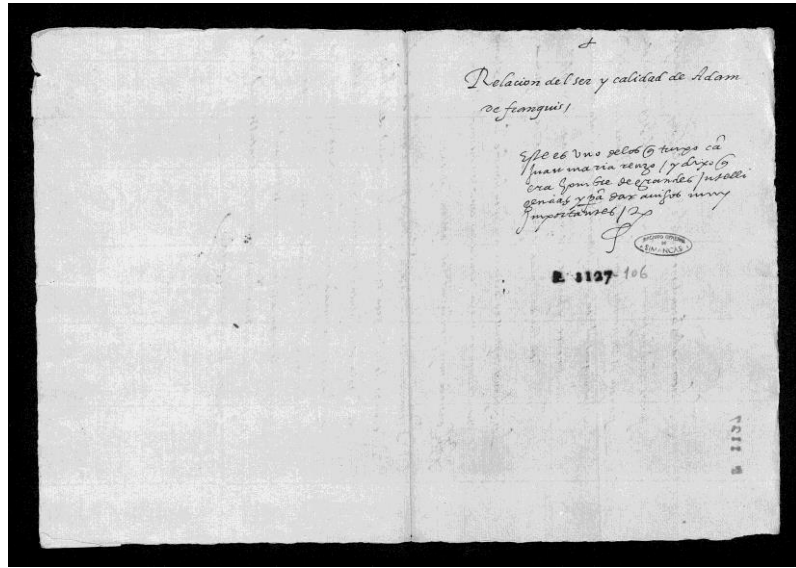 +
Relacion del ser y calidad de Adam
de franquis /
Este es uno de los q̃ truxo cã
Juan maria renzo / y dixo q̃
era hombre de grandes Intelli
gencias y pã dar avisos muy
Importantes /
ARCHIVO GENERAL
DE
SIMANCAS
E 1127 106
E 1127